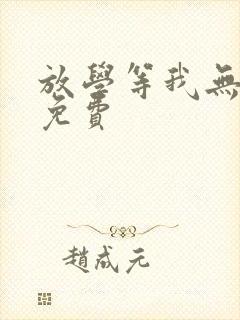 放學等我無
免費
趙成元